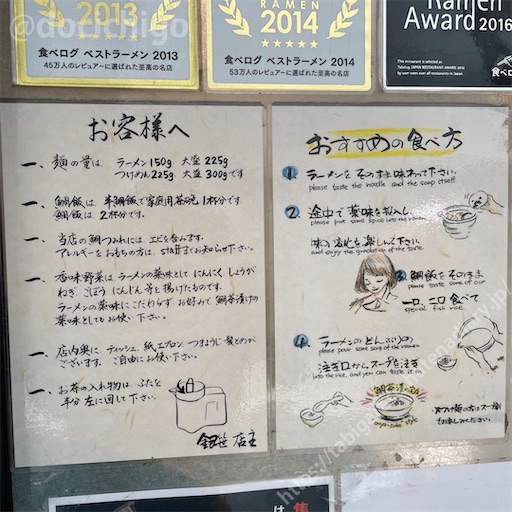 @dorudigo
2013
食べログ ベストラーメン 2013
45万人のレビュアーに選ばれた至高の名店
RAMEN
2014
食べログ ベストラーメン 2014
53万人のレビュアーに選ばれた至高の名店
Ramen
Award 2016
食べログ
お客様へ
一、麺の量は ラーメン150g 大盛225g
つけめん225g 大盛300gです
一、鯛飯は 半鯛飯で家庭用茶碗1杯分です
鯛飯は 2杯分です。
一、当店の鯛つみれには エビを含みます。
アレルギーをおもちの方は、staffまでお知らせ下さい。
一、香味野菜は ラーメンの薬味として にんにく しょうが
ねぎ ごぼう にんじん 等を揚げたものです。
ラーメンの薬味にこだわらず お好みで 鯛茶漬けの
薬味としてもお使い下さい。
一、店内奥に ティッシュ 紙エプロン つまようじ 髪どめが
ございます。ご自由にお使い下さい。
一、お茶の入れ物は ふたを
半分 左に回して下さい。
銀笹 店主
おすすめの食べ方
1. ラーメンをそのまま味わって下さい。
please taste the noodle and the soup itself.
2. 途中で薬味を投入し
please put some spice into the
味の変化を楽しんで下さい
and enjoy the gradation of the taste.
3. 鯛飯をそのまま
please taste some of our
一口、二口 食べて
special fish rice
4. ラーメンのどんぶりの
please pour some soup of the ramen
注ぎ口からスープを注ぎ
into the rice, and you can taste it in
鯛茶漬け
style